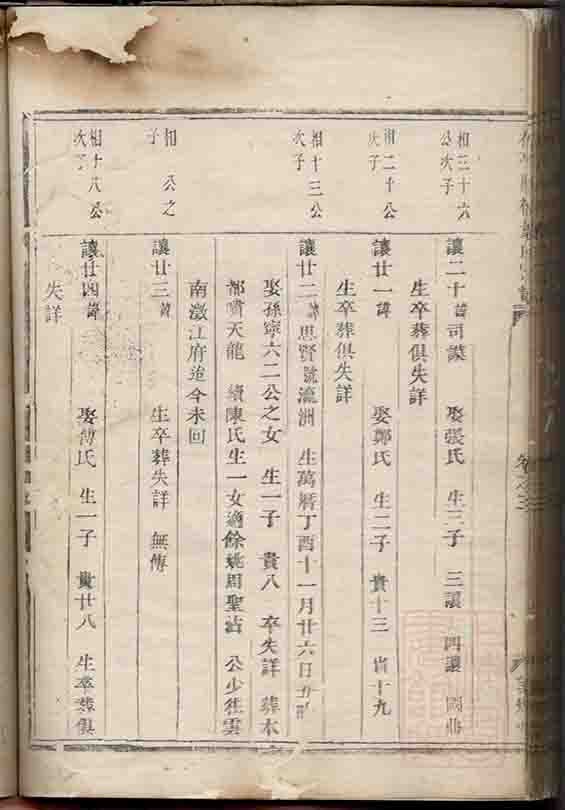 相三十六
公次子
讓二十諱司謨 娶張氏 生三子 三讓 四讓
生卒葬俱失詳
相二十公
次子
讓廿一諱 娶鄭氏 生二子 貴十三 貴十九
生卒葬俱失詳
相十三公
次子
讓廿二諱思賢號瀛洲 生萬曆丁酉十一月廿六日
娶孫寧六二公之女 生一子 貴八 卒失詳 葬本
都嘴天龍 續陳氏生一女適餘姚周聖沾 公少往雲
南澂江府迨今未回
相 公之
子
讓廿三諱 生卒葬失詳 無傳
相十八公
次子
讓廿四諱 娶傅氏 生一子 貴廿八 生卒葬俱
失詳